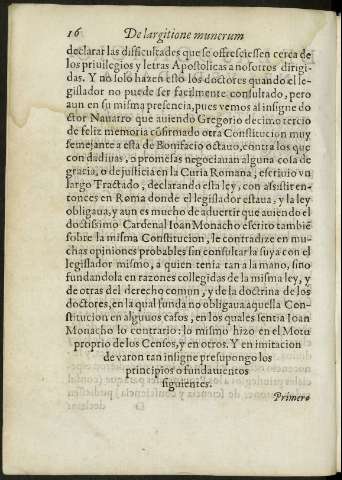 16 De largitione munerum
declarar las difficultades que se offresciessen cerca de
los priuilegios y letras Apostolicas a nosotros dirigi-
das. Y no solo hazen esto los doctores quando el le-
gislador no puede ser facilmente consultado, pero
aun en su misma presencia, pues vemos al insigne do
ctor Nauarro que auiendo Gregorio decimo tercio
de feliz memoria cõfirmado otra Constitucion muy
semejante a esta de Bonifacio octauo, contra los que
con dadiuas, o promesas negociauan alguna cosa de
gracia, o de justicia en la Curia Romana, escriuio vn
largo Tractado, declarando esta ley, con assistir en-
tonces en Roma donde el legislador estaua, y la ley
obligaua, y aun es mucho de aduertir que auiendo el
doctissimo Cardenal Ioan Monacho escrito tambiẽ
sobre la misma Constitucion, le contradize en mu-
chas opiniones probables sin consultar la suya con el
legislador mismo, a quien tenia tan a la mano, sino
fundandola en razones collegidas de la misma ley, y
de otras del derecho comun, y de la doctrina de los
doctores, en la qual funda no obligaua aquella Con-
stitucion en algunos casos, en los quales sentia Ioan
Monacho lo contrario: lo mismo hizo en el Motu
proprio de los Censos, y en otros. Y en imitacion
de varon tan insigne presupongo los
principios o fundamentos
siguientes.
Primero